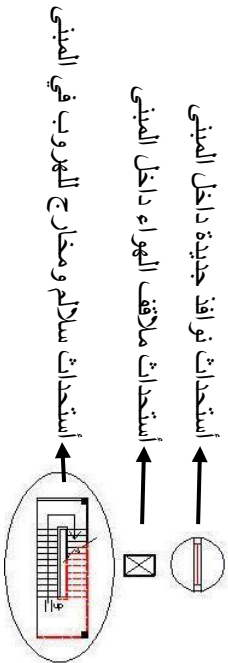 أستحداث نوافذ جديدة داخل المبنى
أستحداث ملاقف الهواء داخل المبنى
أستحداث سلالم ومخارج للهروب في المبنى